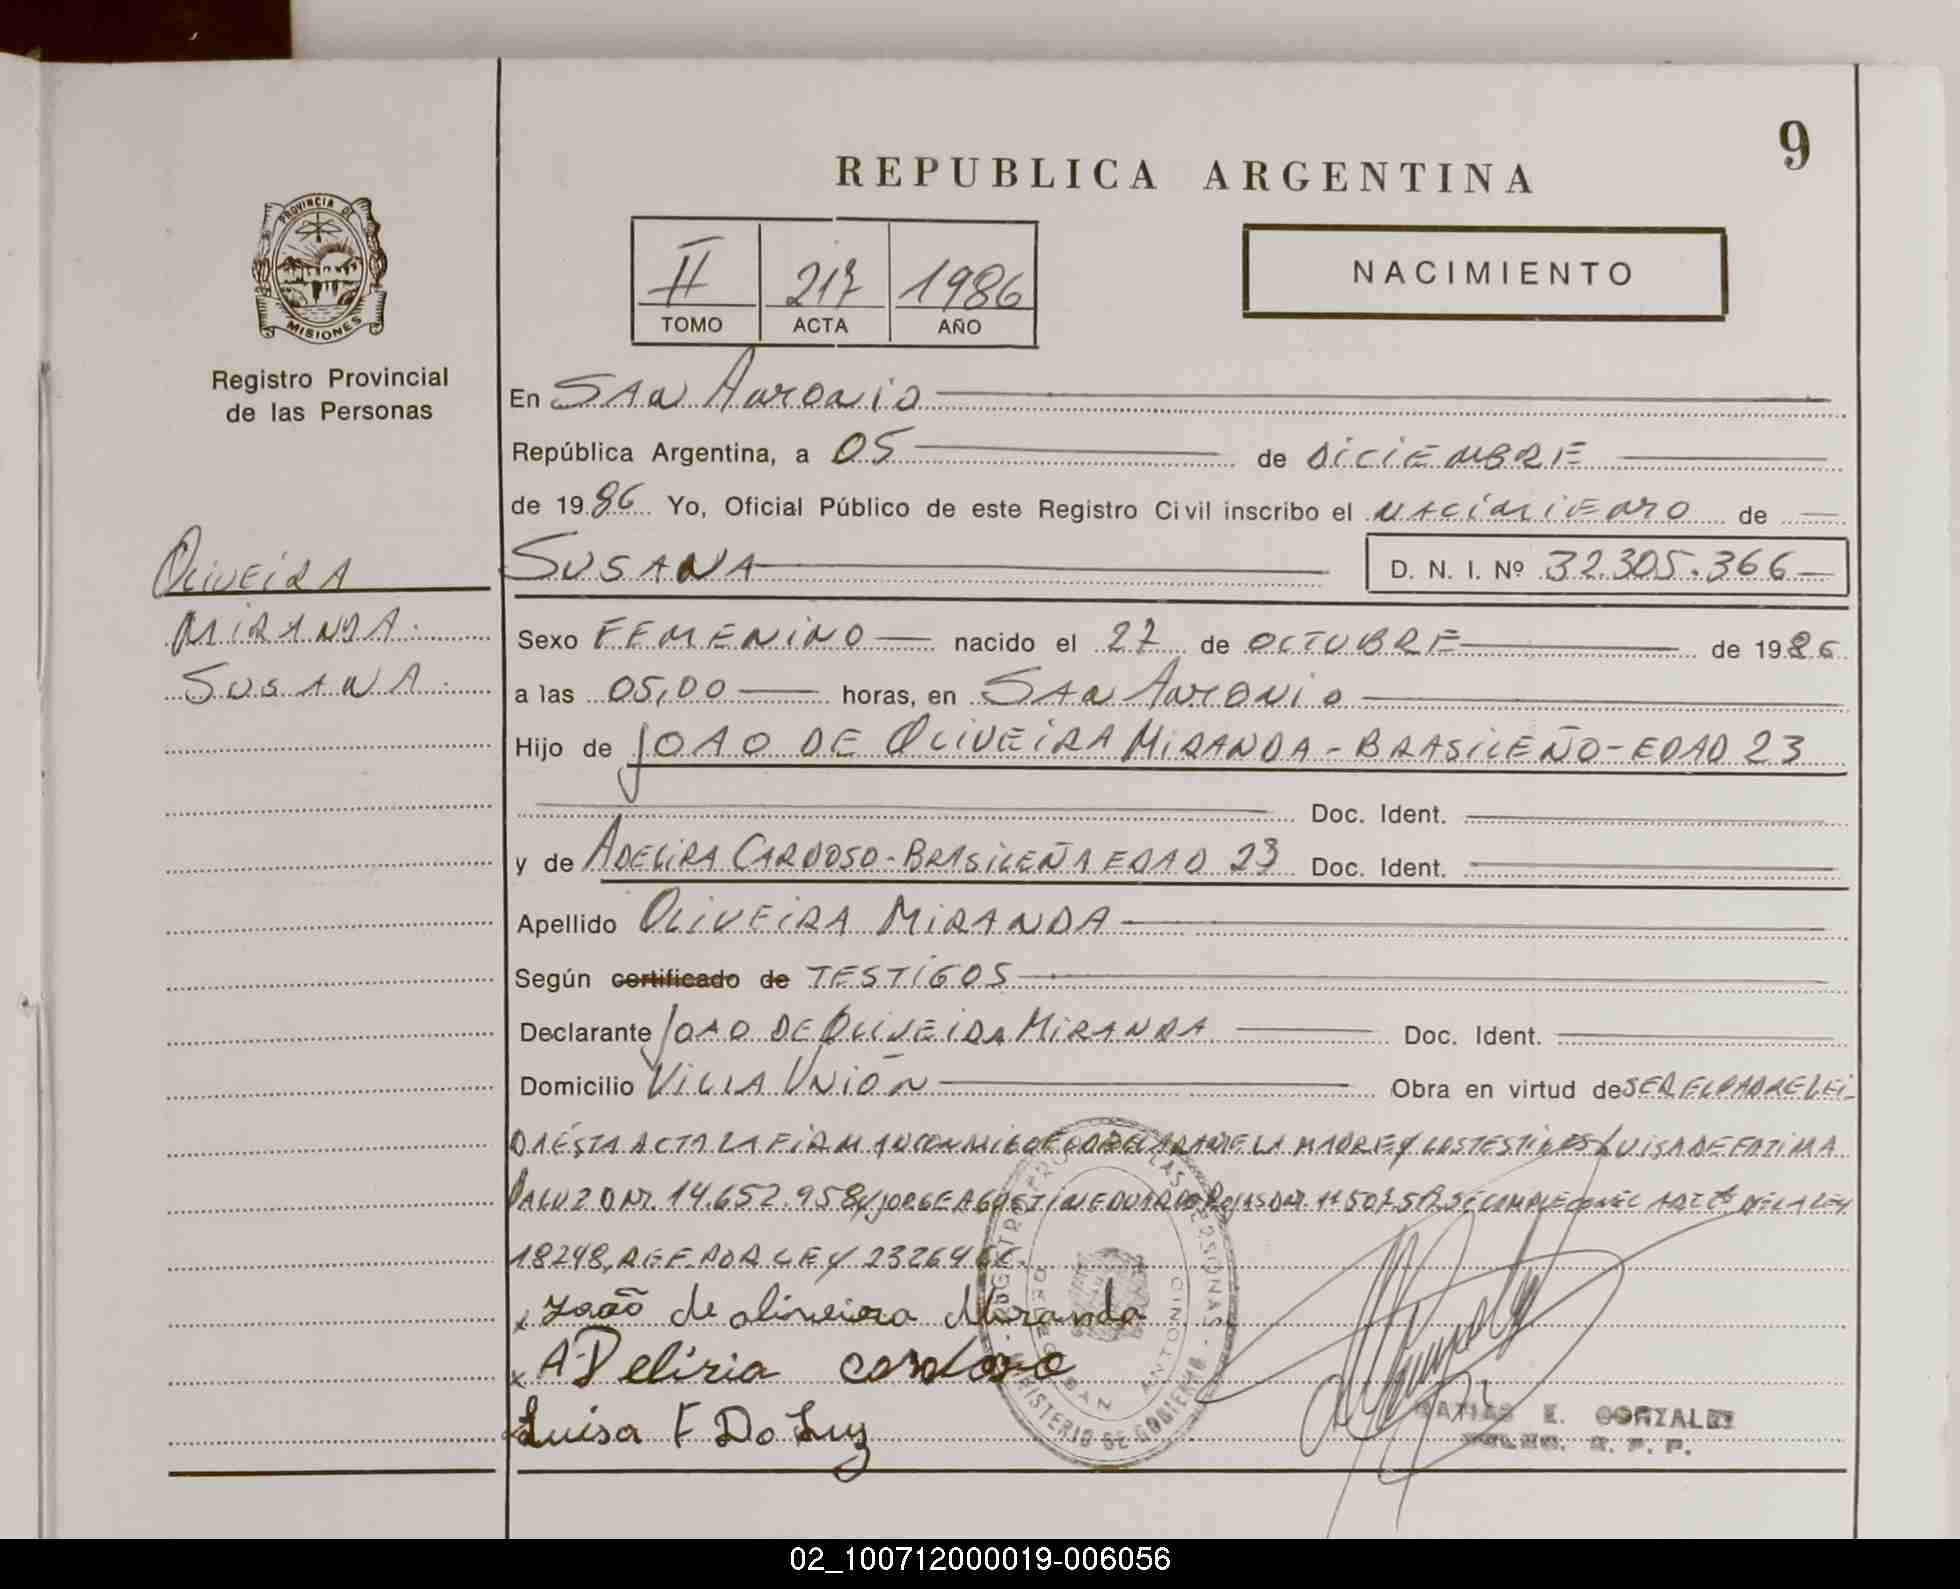 9
REPUBLICA ARGENTINA
PROVINCIA DE
MISIONES
Registro Provincial
de las Personas
II 217 1986
TOMO ACTA AÑO
NACIMIENTO
En SAN ANTONIO
República Argentina, a 05 de DICIEMBRE
de 1986 Yo, Oficial Público de este Registro Civil inscribo el NACIMIENTO de
SUSANA D. N. I. Nº 32.305.366
OLIVEIRA
MIRANDA.
SUSANA.
Sexo FEMENINO nacido el 27 de OCTUBRE de 1986
a las 05,00 horas, en SAN ANTONIO
Hijo de JOAO DE OLIVEIRA MIRANDA - BRASILEÑO - EDAD 23
Doc. Ident.
y de ADELIRA CARDOSO - BRASILEÑA EDAD 23 Doc. Ident.
Apellido OLIVEIRA MIRANDA
Según certificado de TESTIGOS
Declarante JOAO DE OLIVEIRA MIRANDA Doc. Ident.
Domicilio VILLA UNIÓN Obra en virtud de SER EL PADRE LEI-
DA ÉSTA ACTA LA FIRMAN CONMIGO EL DECLARANTE LA MADRE Y LOS TESTIGOS LUISA DE FATIMA
DALUZ DNI. 14.652.958 Y JORGE AGUSTIN EDUARDO ROJAS DNI. SE COMPLE CON EL ART DE LA LEY
18248, REF. POR LEY 23264
x João de oliveira Miranda
x ADeliria cardoso
Luisa F Da Luz
REGISTRO PROV. DE LAS PERSONAS - MINISTERIO DE GOBIERNO
SAN ANTONIO
MATIAS E. GONZALEZ
02_100712000019-006056